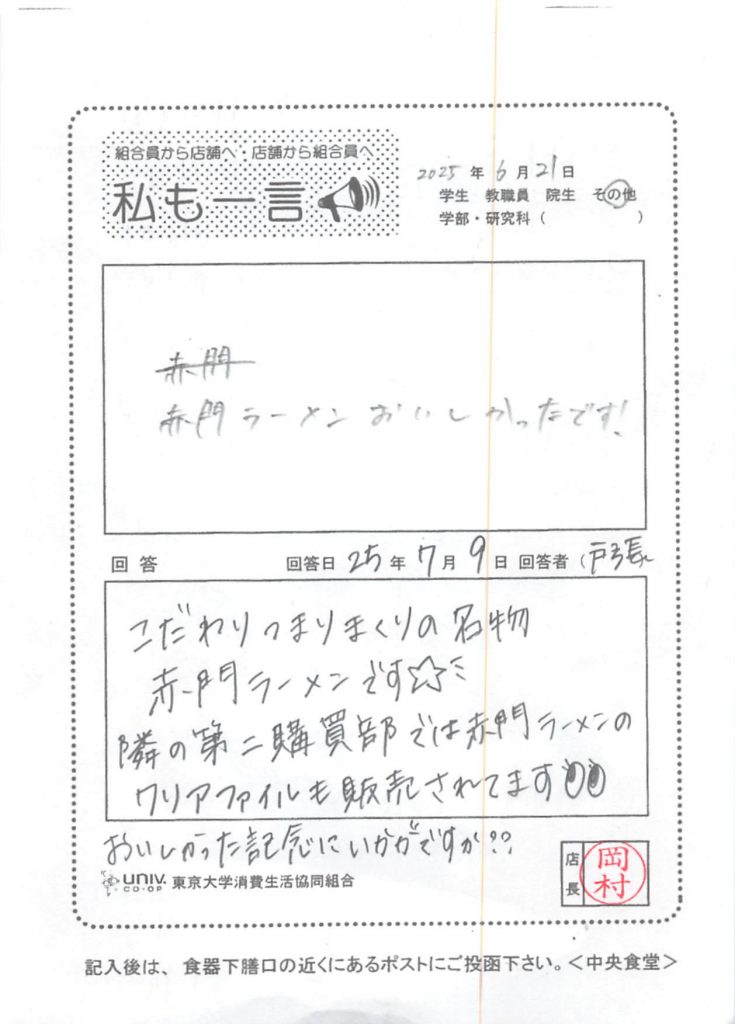 組合員から店舗へ・店舗から組合員へ
私も一言
2025年6月21日
学生 教職員 院生 その他
学部・研究科（ ）
赤門
赤門ラーメンおいしかったです!
回答 回答日 25年7月9日 回答者（戸張
こだわりつまりまくりの名物
赤門ラーメンです☆
隣の第二購買部では赤門ラーメンの
クリアファイルも販売されてます
おいしかった記念にいかがですか??
UNIV. CO-OP 東京大学消費生活協同組合
店長 岡村
記入後は、食器下膳口の近くにあるポストにご投函下さい。＜中央食堂＞